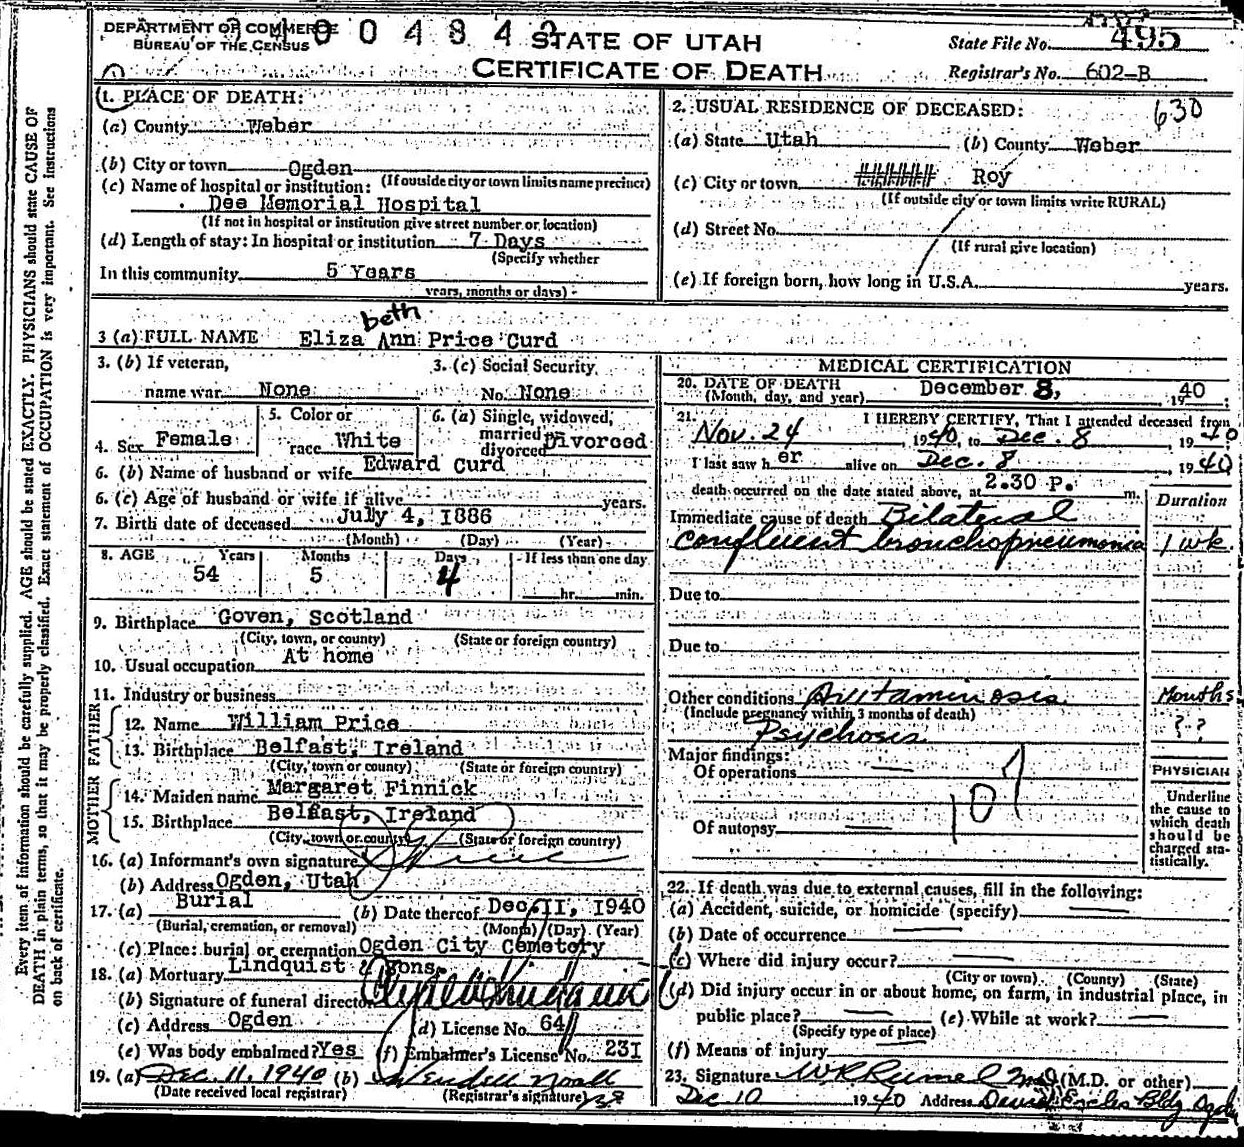 DEPARTMENT OF COMMERCE
BUREAU OF THE CENSUS
STATE OF UTAH
CERTIFICATE OF DEATH
State File No. 495
Registrar's No. 602-B
1. PLACE OF DEATH:
(a) County Weber
(b) City or town Ogden
(If outside city or town limits name precinct)
(c) Name of hospital or institution:
Dee Memorial Hospital
(If not in hospital or institution give street number or location)
(d) Length of stay: In hospital or institution 7 Days
(Specify whether
In this community 5 Years
years, months or days)
2. USUAL RESIDENCE OF DECEASED: 630
(a) State Utah (b) County Weber
(c) City or town ####### Roy
(If outside city or town limits write RURAL)
(d) Street No.
(If rural give location)
(e) If foreign born, how long in U.S.A. years.
beth
3 (a) FULL NAME Eliza Ann Price Curd
3. (b) If veteran, name war None
3. (c) Social Security No. None
4. Sex Female
5. Color or race White
6. (a) Single, widowed, married, divorced Divorced
6. (b) Name of husband or wife Edward Curd
6. (c) Age of husband or wife if alive years.
7. Birth date of deceased July 4, 1886
(Month) (Day) (Year)
8. AGE Years Months Days If less than one day
54 5 4 hr. min.
9. Birthplace Goven, Scotland
(City, town, or county) (State or foreign country)
10. Usual occupation At home
11. Industry or business
FATHER
12. Name William Price
13. Birthplace Belfast, Ireland
(City, town or county) (State or foreign country)
MOTHER
14. Maiden name Margaret Finnick
15. Birthplace Belfast, Ireland
(City, town or county) (State or foreign country)
16. (a) Informant's own signature
(b) Address Ogden, Utah
17. (a) Burial (b) Date thereof Dec. 11, 1940
(Burial, cremation, or removal) (Month) (Day) (Year)
(c) Place: burial or cremation Ogden City Cemetery
18. (a) Mortuary Lindquist & Sons
(b) Signature of funeral director
(c) Address Ogden (d) License No. 64
(e) Was body embalmed? Yes (f) Embalmer's License No. 231
19. (a) Dec. 11, 1940 (b) Wendell Noall
(Date received local registrar) (Registrar's signature)
MEDICAL CERTIFICATION
20. DATE OF DEATH December 8, 1940
(Month, day, and year)
21. I HEREBY CERTIFY, That I attended deceased from
Nov. 24, 1940, to Dec. 8 1940
I last saw her alive on Dec. 8, 1940
death occurred on the date stated above, at 2.30 P. m.
Duration
Immediate cause of death Bilateral
confluent bronchopneumonia 1 wk.
Due to
Due to
Other conditions Avitaminosis Months
(Include pregnancy within 3 months of death)
Psychosis ??
Major findings:
Of operations
107
Of autopsy
PHYSICIAN
Underline
the cause to
which death
should be
charged sta-
tistically.
22. If death was due to external causes, fill in the following:
(a) Accident, suicide, or homicide (specify)
(b) Date of occurrence
(c) Where did injury occur?
(City or town) (County) (State)
(d) Did injury occur in or about home, on farm, in industrial place, in
public place? (e) While at work?
(Specify type of place)
(f) Means of injury
23. Signature W R Rumel M.D. (M.D. or other)
Dec 10 1940 Address David Eccles Bldg Ogden
Every item of information should be carefully supplied. AGE should be stated EXACTLY. PHYSICIANS should state CAUSE OF
DEATH in plain terms, so that it may be properly classified. Exact statement of OCCUPATION is very important. See instructions
on back of certificate.